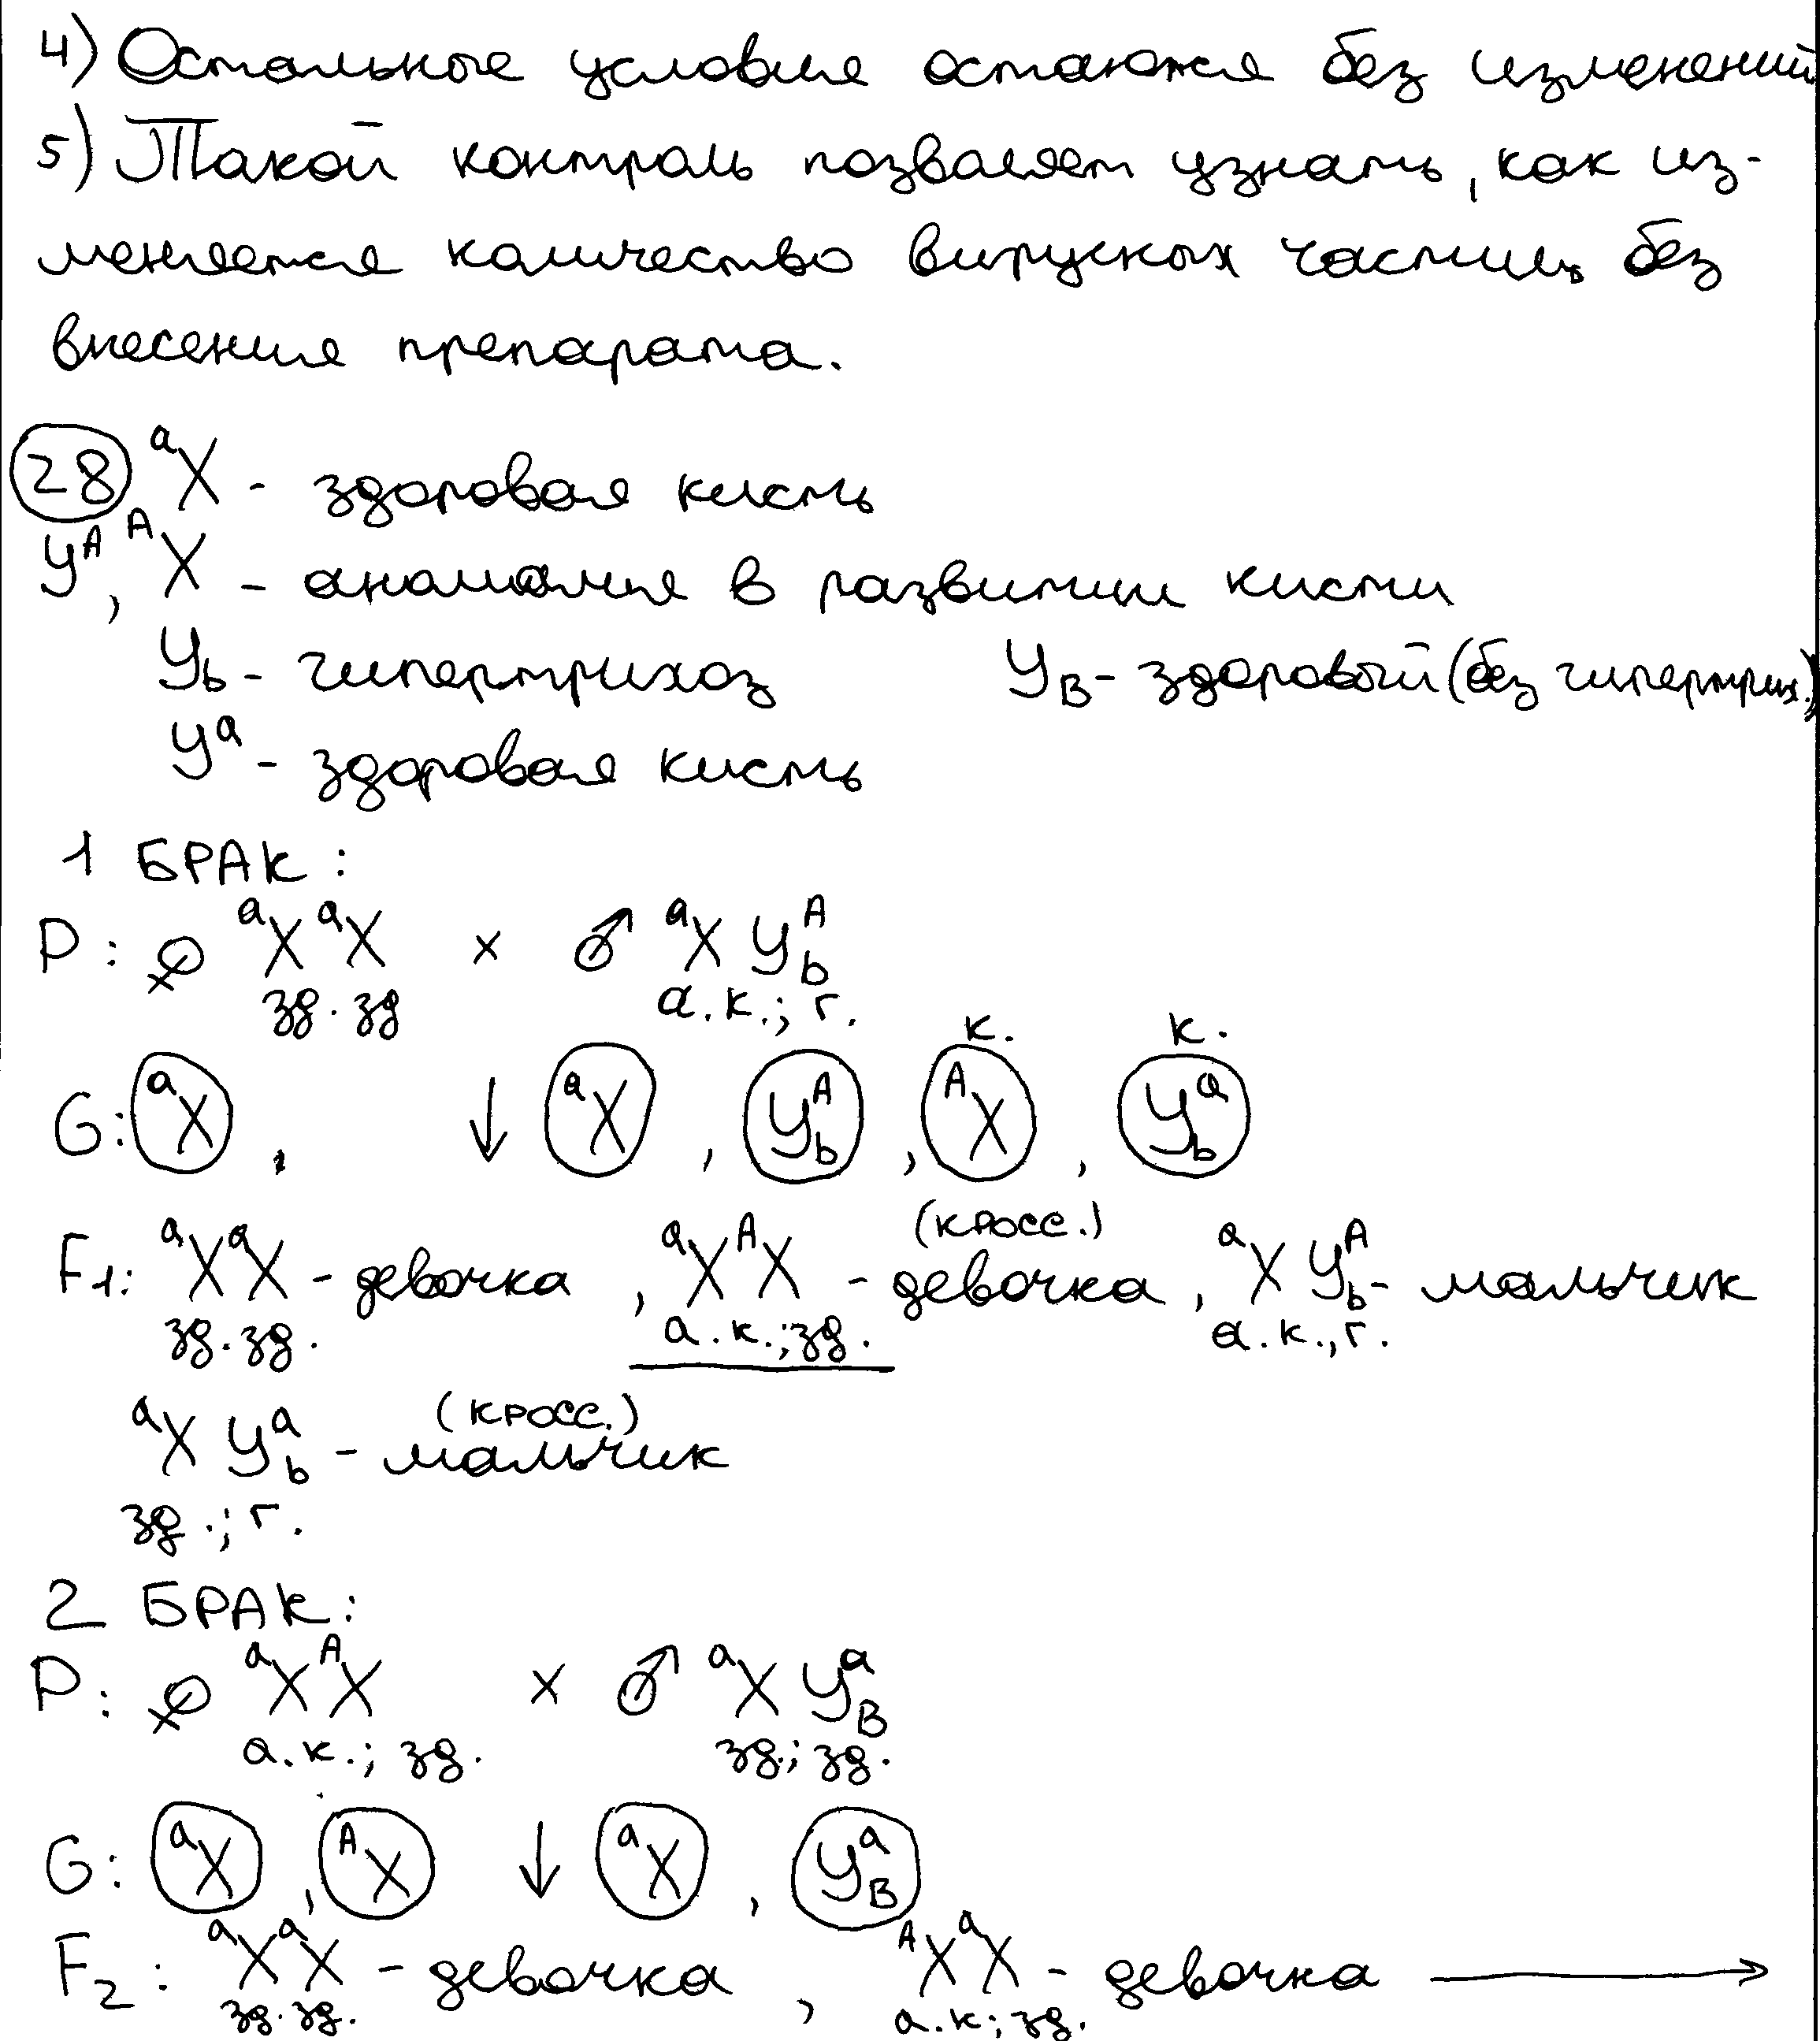 4) Остальные условия остаются без изменений
5) Такой контроль позволяет узнать, как из-
меняется количество вирусных частиц без
внесения препарата.
28 ᵃX - здоровая кисть
Yᴬ, ᴬX - аномалия в развитии кисти
Yb - гипертрихоз YB - здоровый (без гипертрих.)
Yᵃ - здоровая кисть
1 БРАК:
P: ♀ ᵃXᵃX × ♂ ᵃXYᴬb
зд. зд а.к.; г.
к. к.
G: ᵃX, ↓ ᵃX, Yᴬb, ᴬX, Yᵃb
(кросс.)
F1: ᵃXᵃX - девочка, ᵃXᴬX - девочка, ᵃXYᴬb - мальчик
зд. зд. а.к.; зд. а.к., г.
(кросс.)
ᵃXYᵃb - мальчик
зд.; г.
2 БРАК:
P: ♀ ᵃXᴬX × ♂ ᵃXYᵃB
а.к.; зд. зд.; зд.
G: ᵃX, ᴬX ↓ ᵃX, YᵃB
F2: ᵃXᵃX - девочка, ᴬXᵃX - девочка →
зд. зд. а.к; зд.